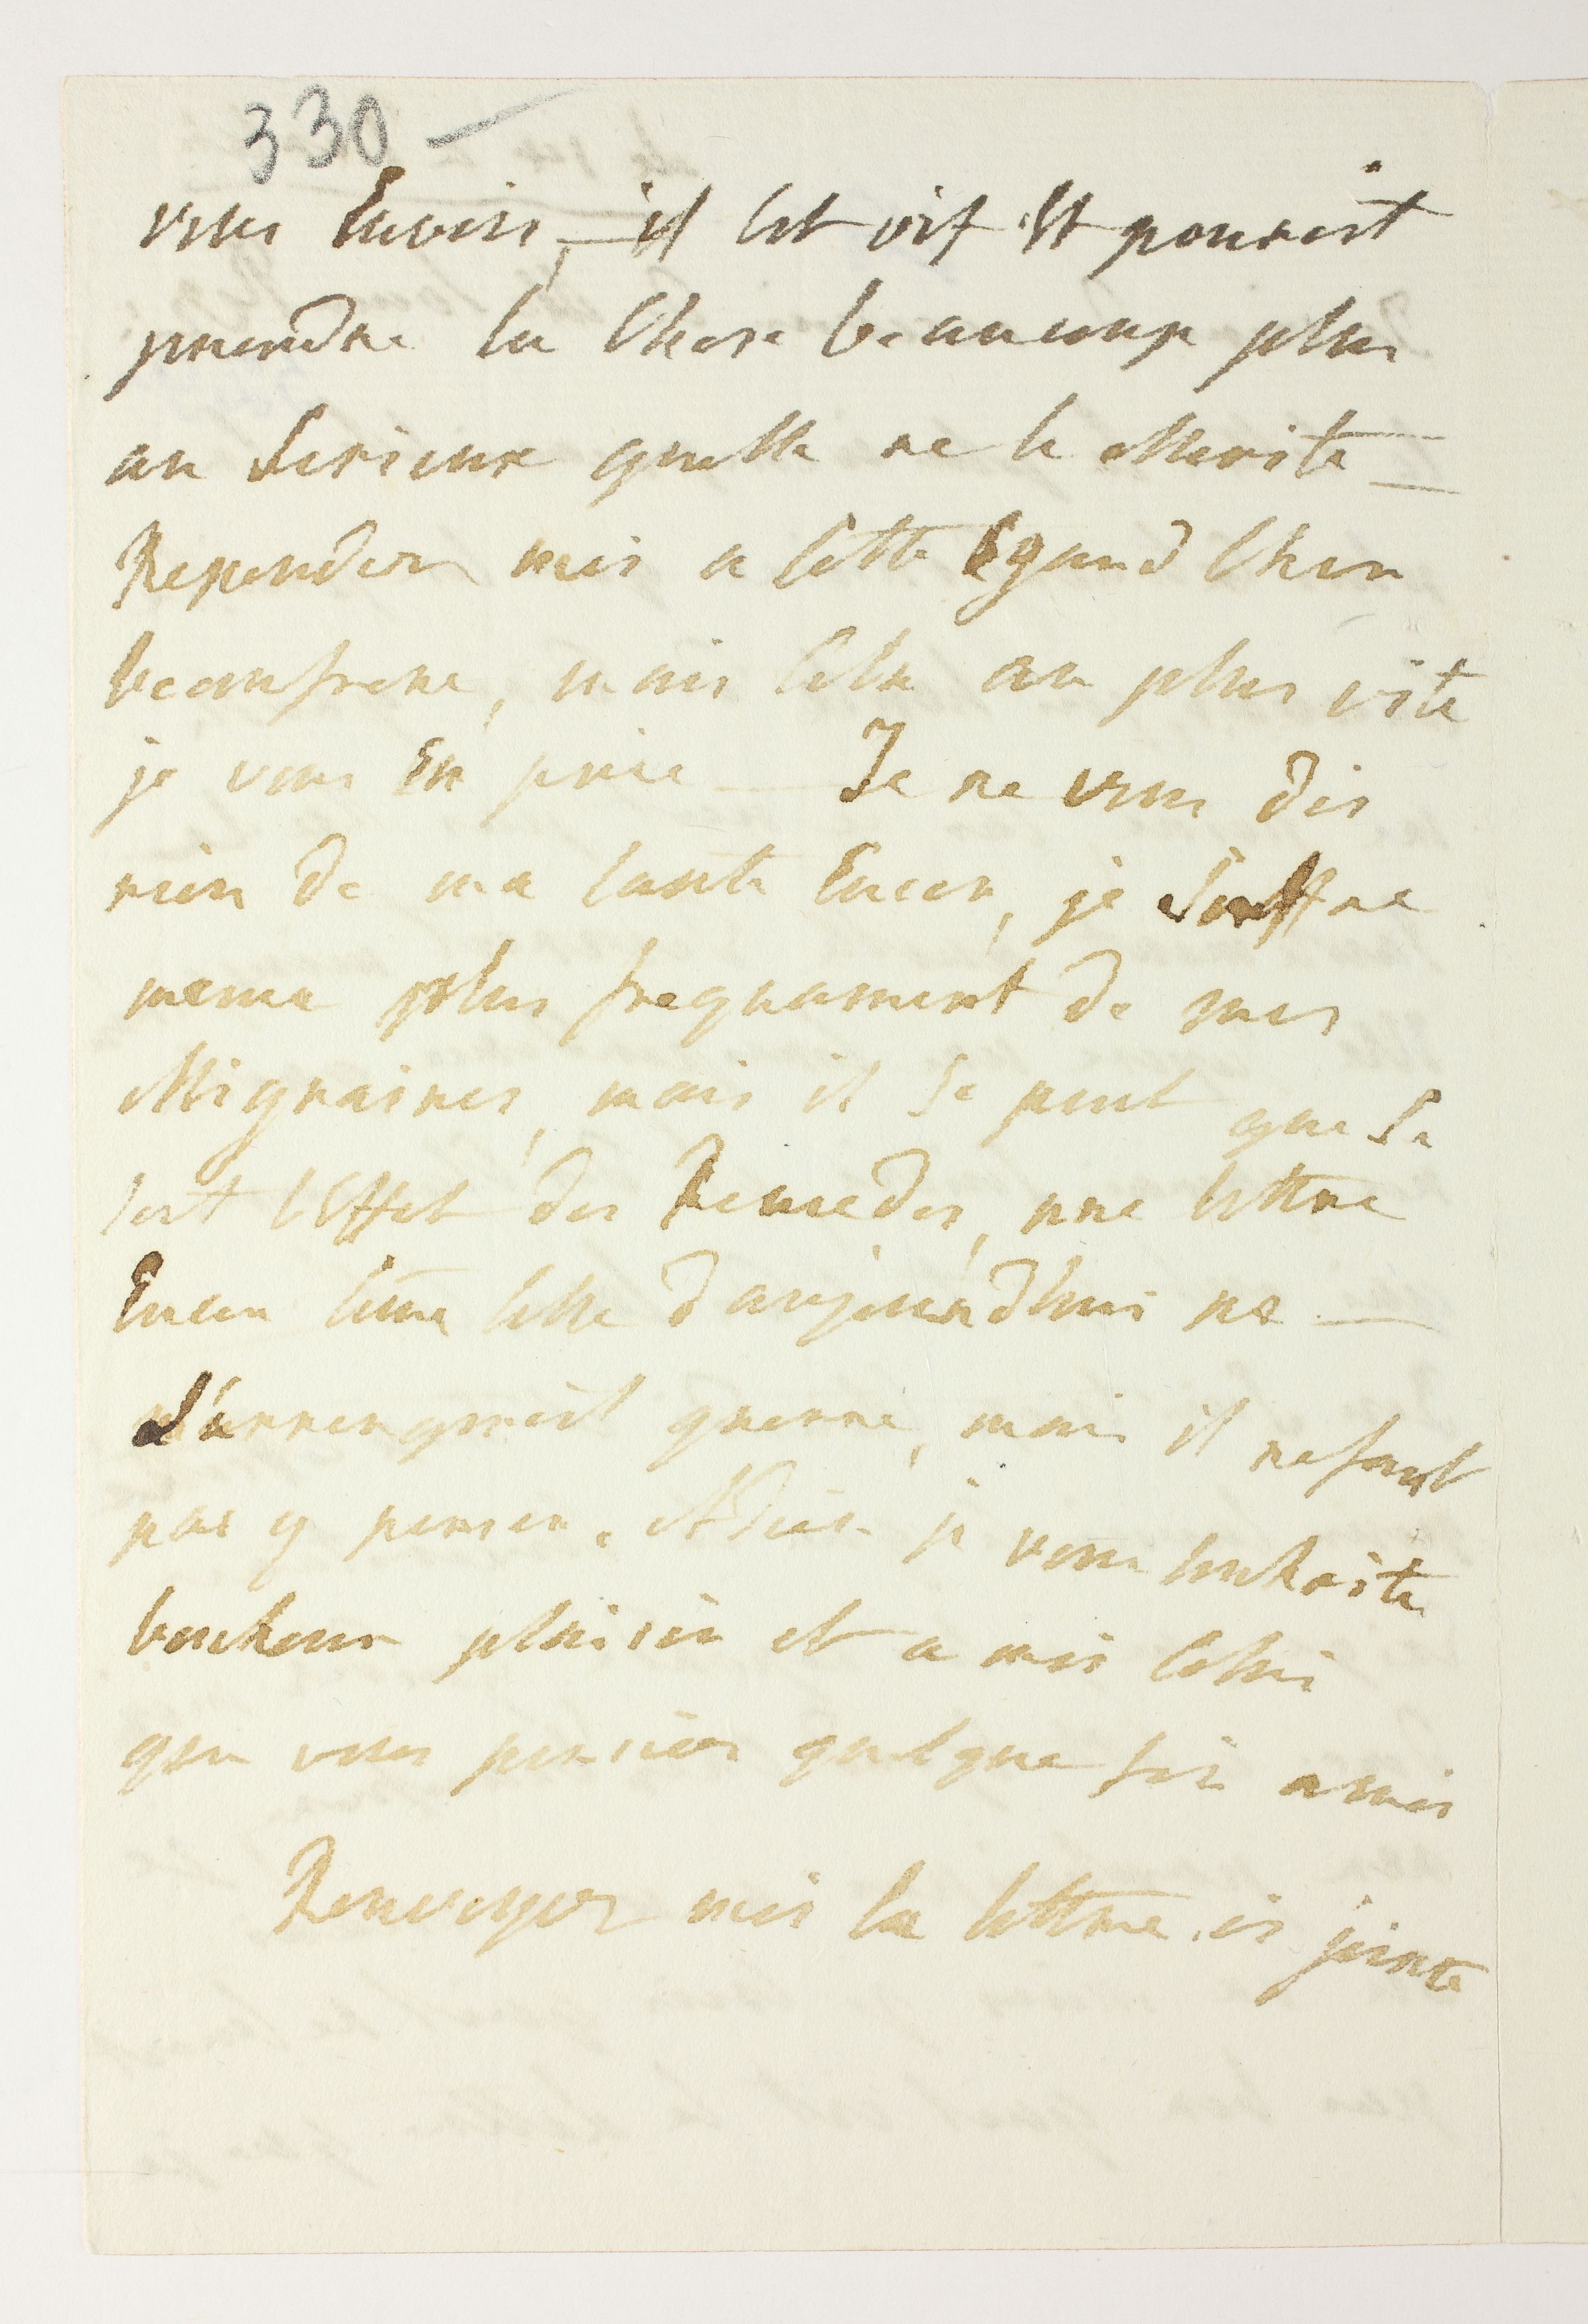 330 —
vous Envois, — il Est vif Et pouroit
prendre la Chose beaucoup plus
au Serieux quelle ne le Merite —
Repondez moi a Cette Egard Cher
beaufrere, mais Cela au plus vite
je vous En prie — Je ne vous dis
rien de ma Santé Encor, je Souffre
meme plus frequament de mes
Migraines, mais il Se peut que Sa
soit l'Effet des Remedes, une lettre
Encor Come Celle d'aujourd'hui ne —
d'arrengroit guerre, mais il ne faut
pas y penser. Adieu je vous souhaite
bonheur plaisir et a moi Celui
que vous pensiez quelque fois a moi
Renvoyez moi la lettre ci jointe